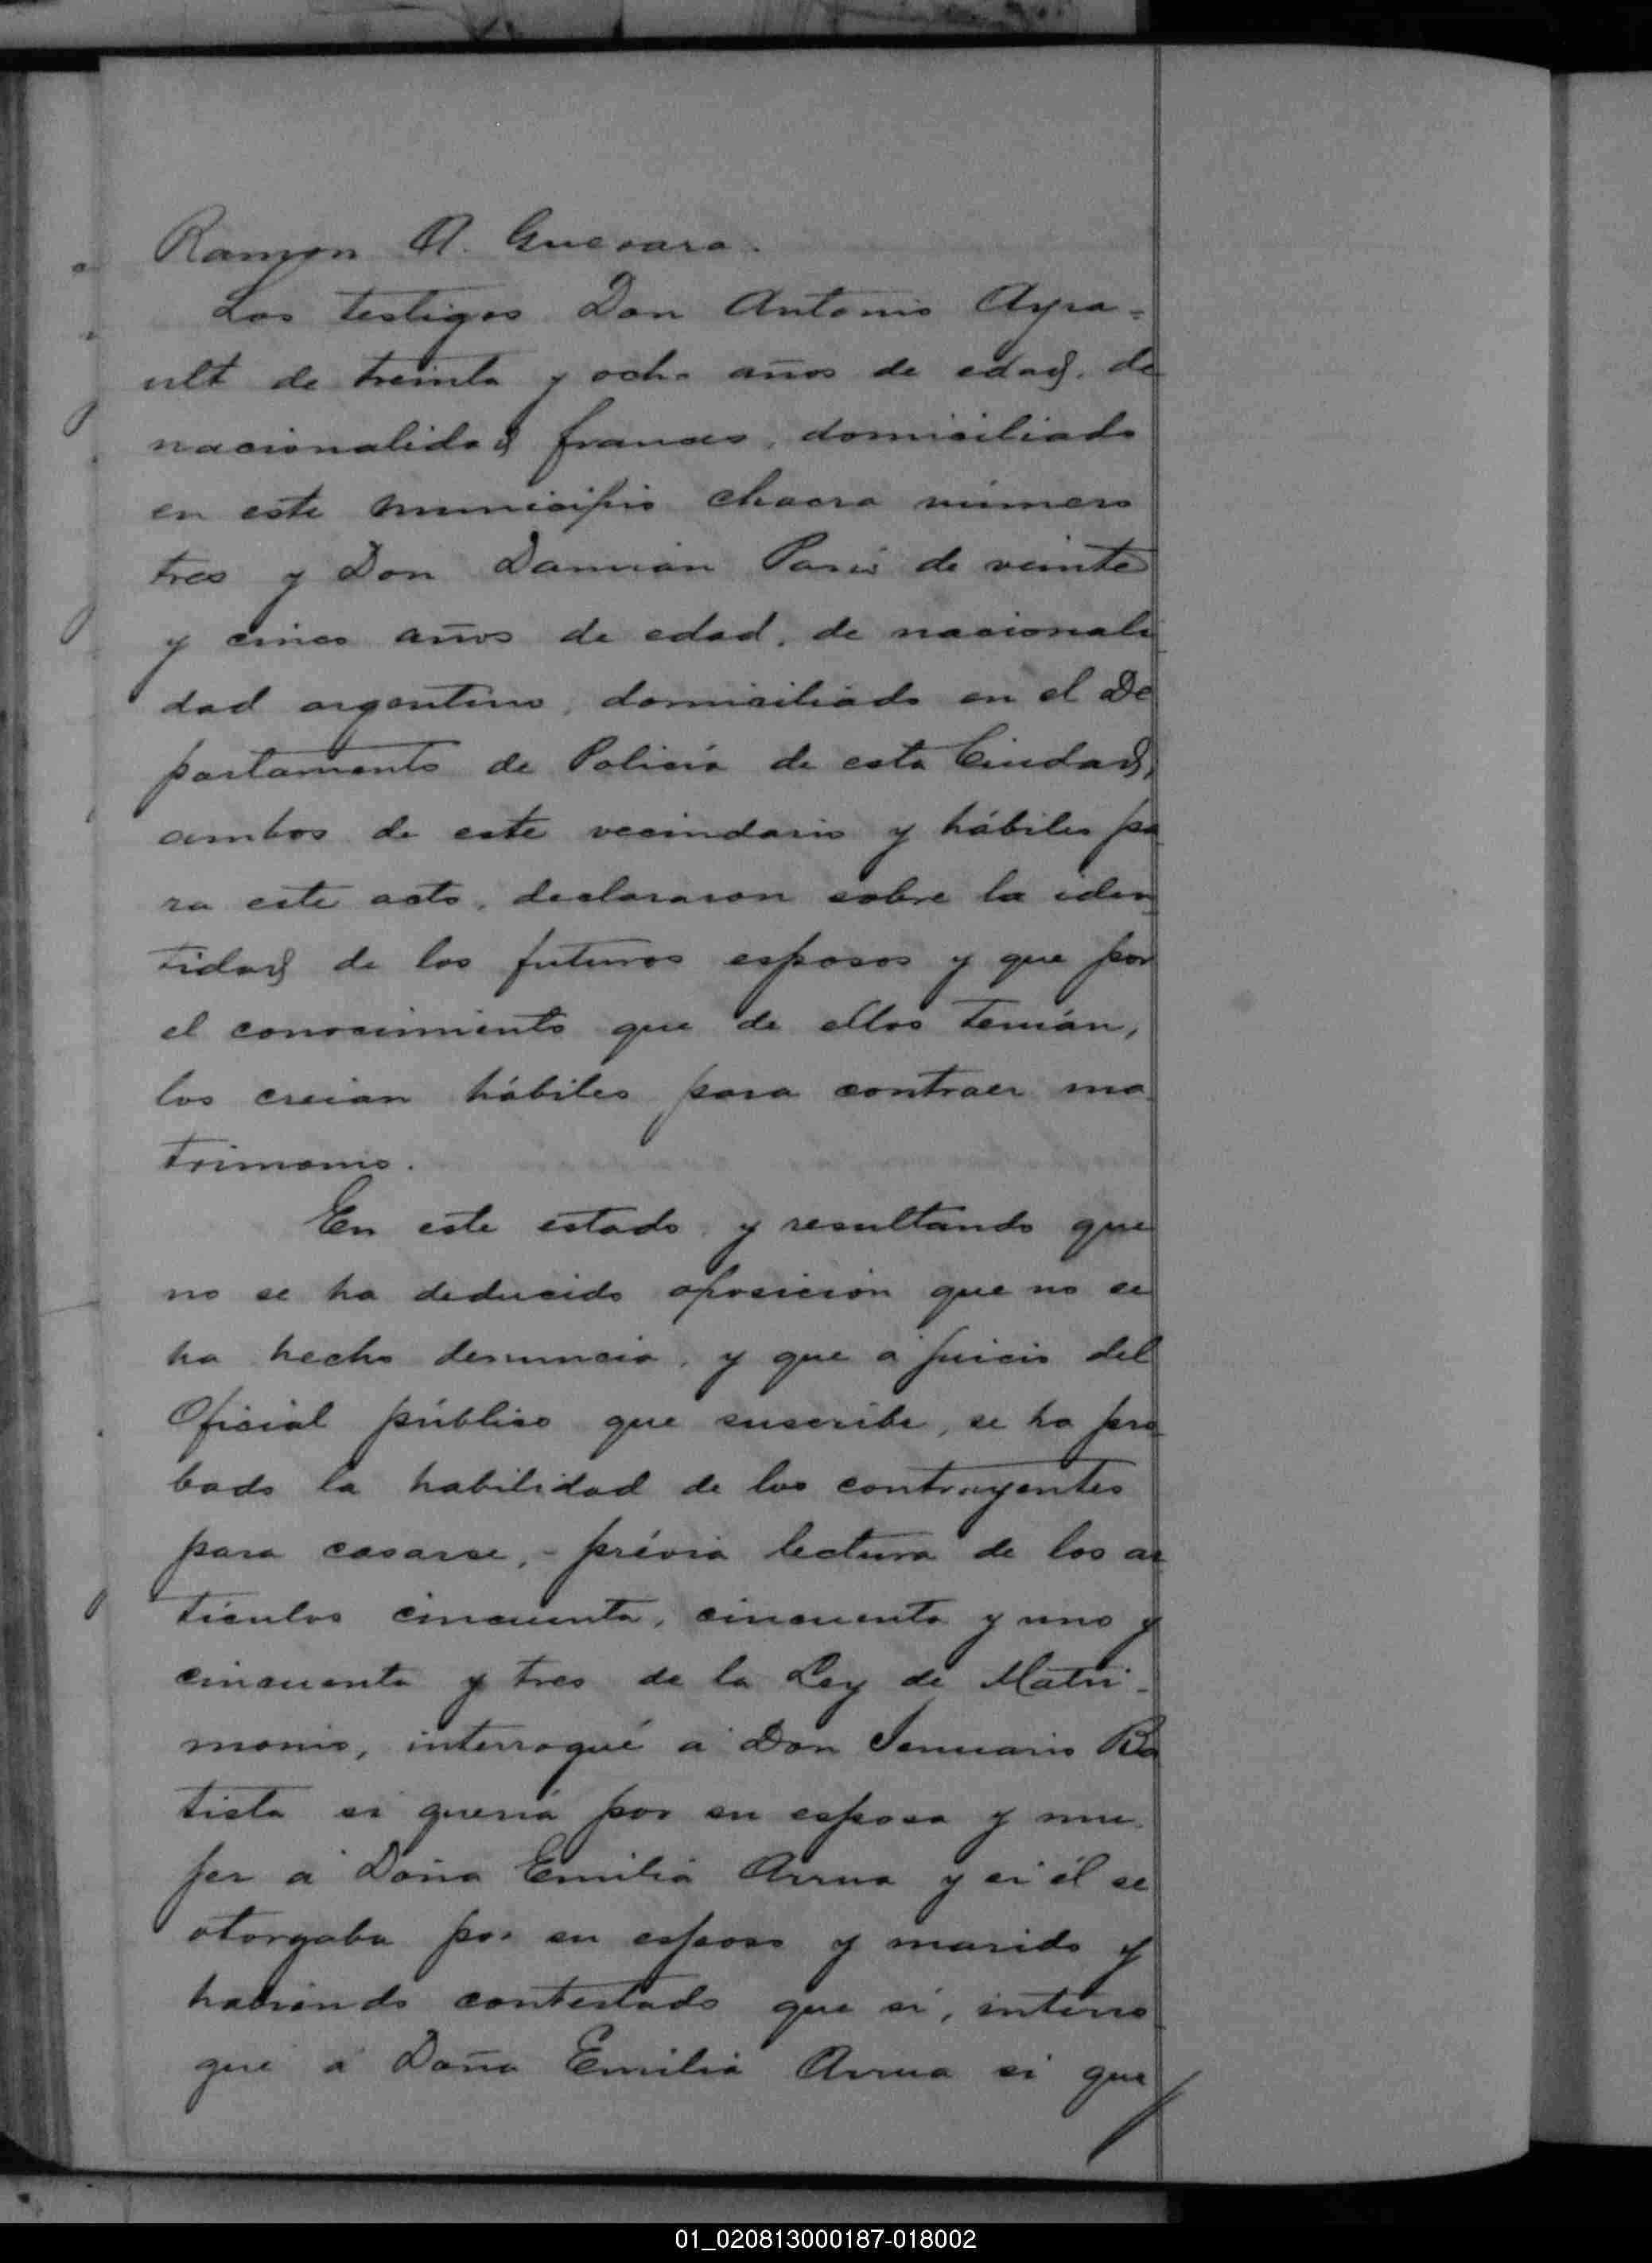 Ramon A. Guevara.
Los testigos Don Antonio Ayra=
ult de treinta y ocho años de edad, de
nacionalidad frances, domiciliado
en este municipio chacra número
tres y Don Damian Paris de veinte
y cinco años de edad, de nacionali
dad argentino, domiciliado en el De
partamento de Policía de esta Ciudad,
ambos de este vecindario y hábiles pa
ra este acto, declararon sobre la iden
tidad de los futuros esposos y que por
el conocimiento que de ellos tenían,
los creian hábiles para contraer ma
trimonio.
En este estado y resultando que
no se ha deducido oposicion que no se
ha hecho denuncia, y que á juicio del
Oficial público que suscribe, se ha pro
bado la habilidad de los contrayentes
para casarse,- prévia lectura de los ar
tículos cincuenta, cincuenta y uno y
cincuenta y tres de la Ley de Matri-
monio, interrogué á Don Jenuario Ba
tista si quería por su esposa y mu
jer á Doña Emilia Arrua y si él se
otorgaba por su esposo y marido y
habiendo contestado que sí, interro
gué á Doña Emilia Arrua si que
01_020813000187-018002